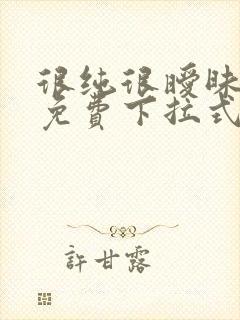 很纯很暧昧
免費下拉式
許甘露